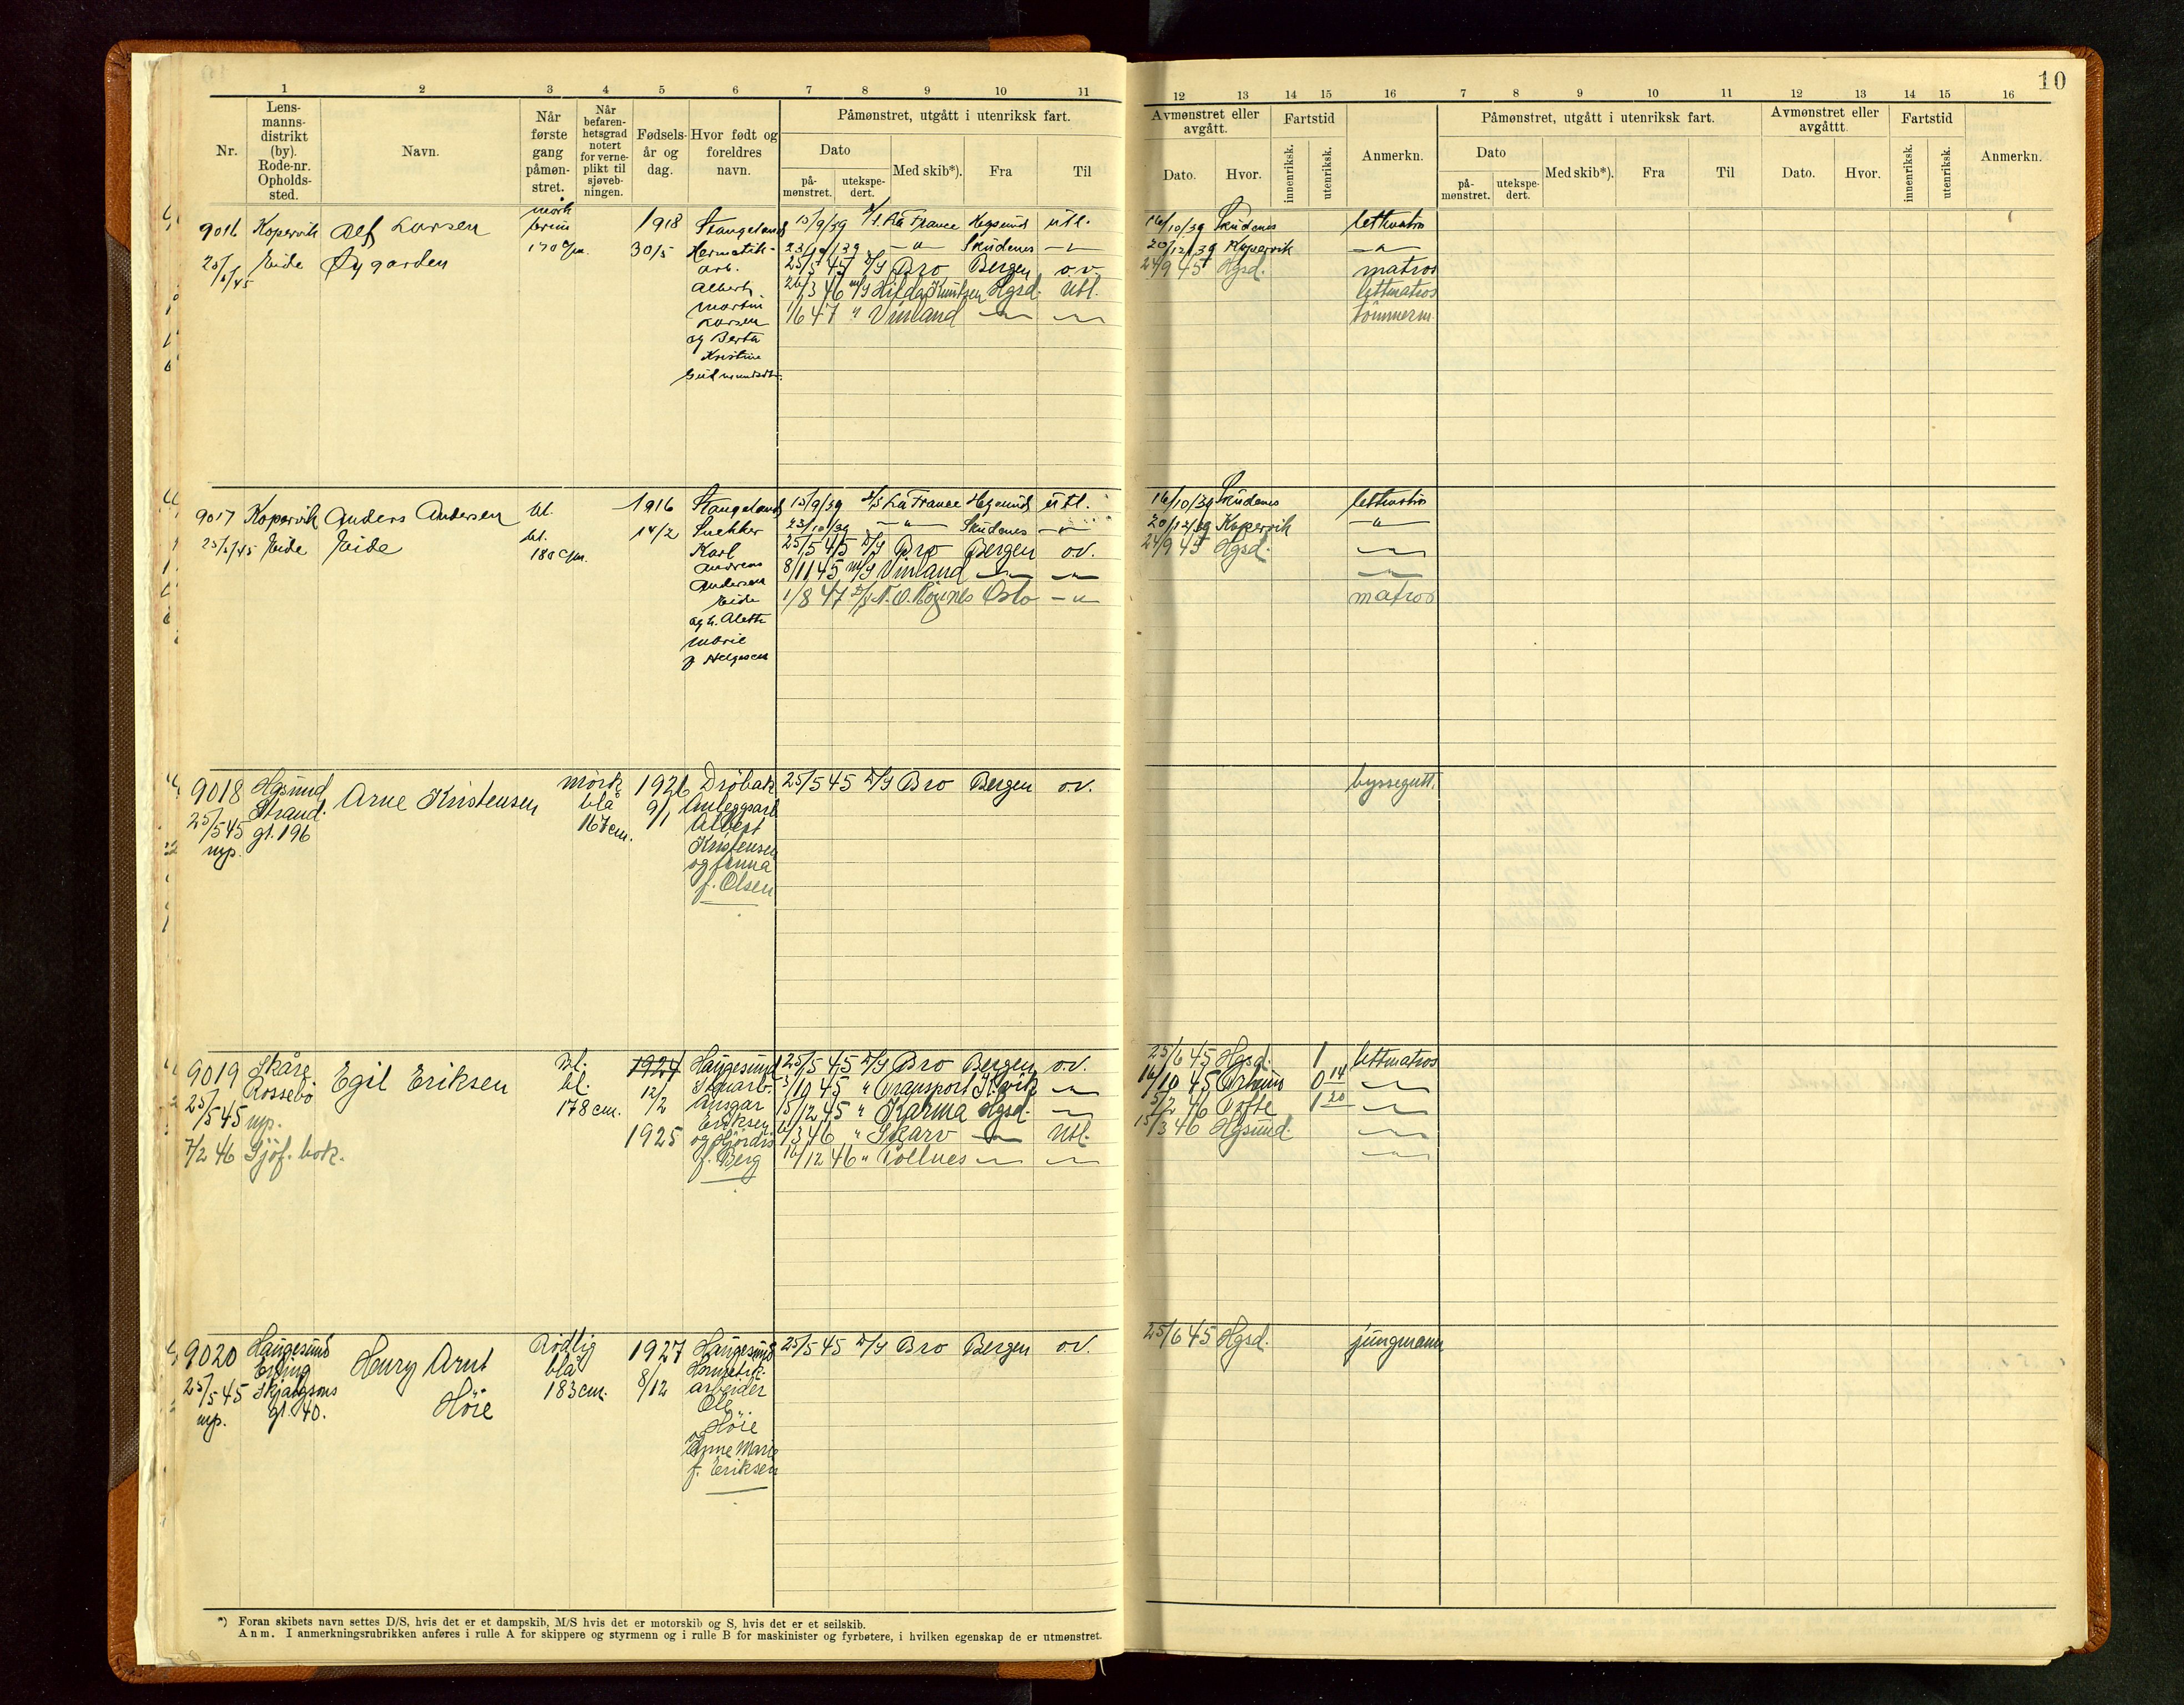 10
1 2 3 4 5 6 7 8 9 10 11
12 13 14 15 16 7 8 9 10 11 12 13 14 15 16
Nr.
Lens-
manns-
distrikt
(by).
Rode-nr.
Opholds-
sted.
Navn.
Når
første
gang
påmøn-
stret.
Når
befaren-
hetsgrad
notert
for verne-
plikt til
sjøveb-
ningen.
Fødsels-
år og
dag.
Hvor født og
foreldres
navn.
Påmønstret, utgått i utenriksk fart.
Dato
på-
mønstret.
utekspe-
dert.
Med skib*).
Fra
Til
Avmønstret eller
avgått.
Dato.
Hvor.
Fartstid
innenriksk.
utenriksk.
Anmerkn.
Påmønstret, utgått i utenriksk fart.
Dato
på-
mønstret.
utekspe-
dert.
Med skib*).
Fra
Til
Avmønstret eller
avgåttt.
Dato.
Hvor.
Fartstid
innenriksk.
utenriksk.
Anmerkn.
9016 Kopervik Alf Larsen
25/5/45 Eide Øygarden
mörk
brun
170 c/m.
1918
30/5
Stangeland
Hermetik-
arb.
Albert
Martin
Larsen
og Berta
Kristine
15/9/39 D/S La France Hgsund utl.
23/10/39 —"— Skudenes —"—
25/5 45 D/S Bro Bergen o.v.
26/3 46 M/S Hilda Knutsen Hgsd. Utl.
1/6 47 " Vinland —"— —"—
16/10/39 Skudenes lettmatros
20/12/39 Kopervik —"—
24/9 45 Hgsd. matros
lettmatros
tömmerm.
9017 Kopervik Anders Andersen
25/5/45 Eide Eide
bl.
bl.
180 c/m.
1916
14/2
Stangeland
Snekker
Karl
Andreas
Andersen
Eide
og h. Alette
Marie
f. Helgesen
15/9/39 D/S La France Hgsund utl.
23/10/39 —"— Skudenes —"—
25/5 45 D/S Bro Bergen o.v.
8/11 45 M/S Vinland —"— —"—
1/8 47 D/S N.O. Rögenes Oslo —"—
16/10/39 Skudenes lettmatros
20/12/39 Kopervik —"—
24/9 45 Hgsd. —"—
—"—
matros
9018 Hgsund Arne Kristensen
Strand.
25/5 45 gt. 196
mp.
mörk
blå
167 cm.
1926
9/1
Dröbak
Anleggsarb
Albert
Kristensen
og Anna
f. Olsen
25/5 45 D/S Bro Bergen o.v.
byssegutt.
9019 Skåre Egil Eriksen
Rossebö
25/5 45 mp.
7/2 46 Sjöf. bok.
bl.
bl.
178 cm.
1924
12/2
1925
Haugesund
Ansgar
Eriksen
og Hjördis
f. Berg
25/5 45 D/S Bro Bergen o.v.
3/10 45 " Transport K.vik —"—
15/12 45 " Karma Hgsd. —"—
/3 46 " Skarv —"— Utl.
16/12 46 " Tollnes —"— —"—
25/6 45 Hgsd. 1 lettmatros
16/10 45 Århus 0 14 —"—
5/2 46 Tofte 1 20 —"—
15/3 46 Hgsund. —"—
—"—
9020 Haugesund Henry Arnt
Erling Höie
25/5 45 Skjalgsons
mp. gt. 40.
Rödlig
blå
183 cm.
1927
8/12
Haugesund
Hermetik-
arbeider
Ole
Höie
og
Anne Marie
f. Eriksen
25/5 45 D/S Bro Bergen o.v.
25/6 45 Hgsd. jungmann
*) Foran skibets navn settes D/S, hvis det er et dampskib, M/S hvis det er motorskib og S, hvis det er et seilskib.
Anm. I anmerkningsrubrikken anføres i rulle A for skippere og styrmenn og i rulle B for maskinister og fyrbøtere, i hvilken egenskap de er utmønstret.